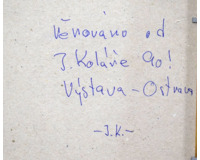 Věnováno od
J. Koláře 90!
Výstava - Ostrava
- J.K. -